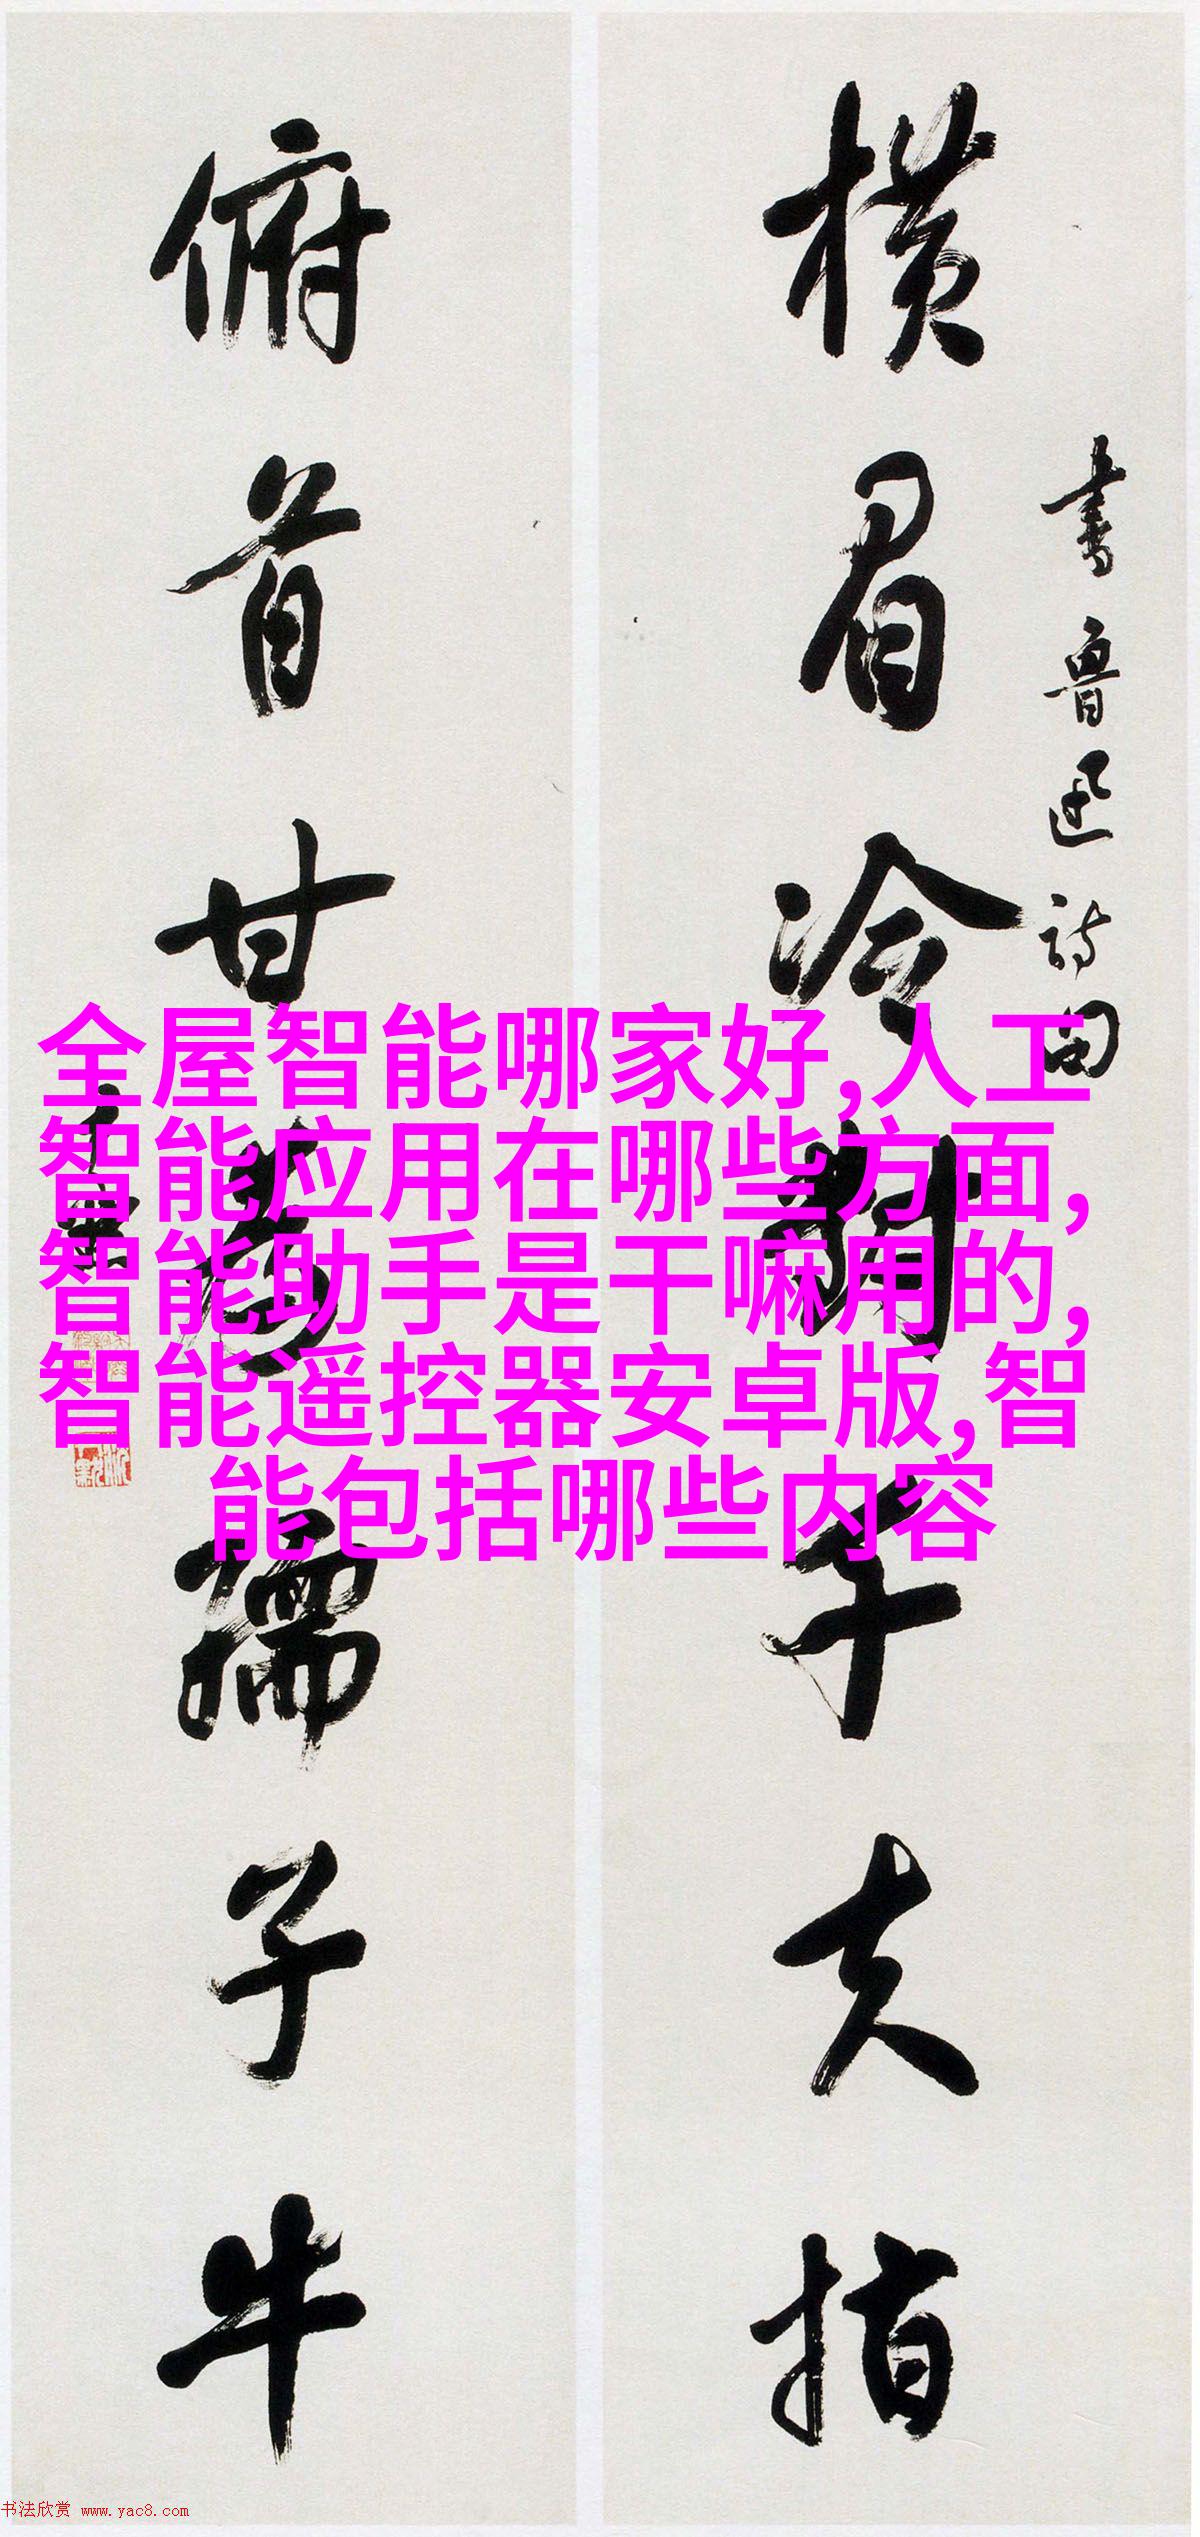 書魯迅詩句
横眉冷對千夫指
俯首甘為孺子牛
全屋智能哪家好,人工
智能应用在哪些方面,
智能助手是干嘛用的,
智能遥控器安卓版,智
能包括哪些内容
书法欣赏 www.yac8.com